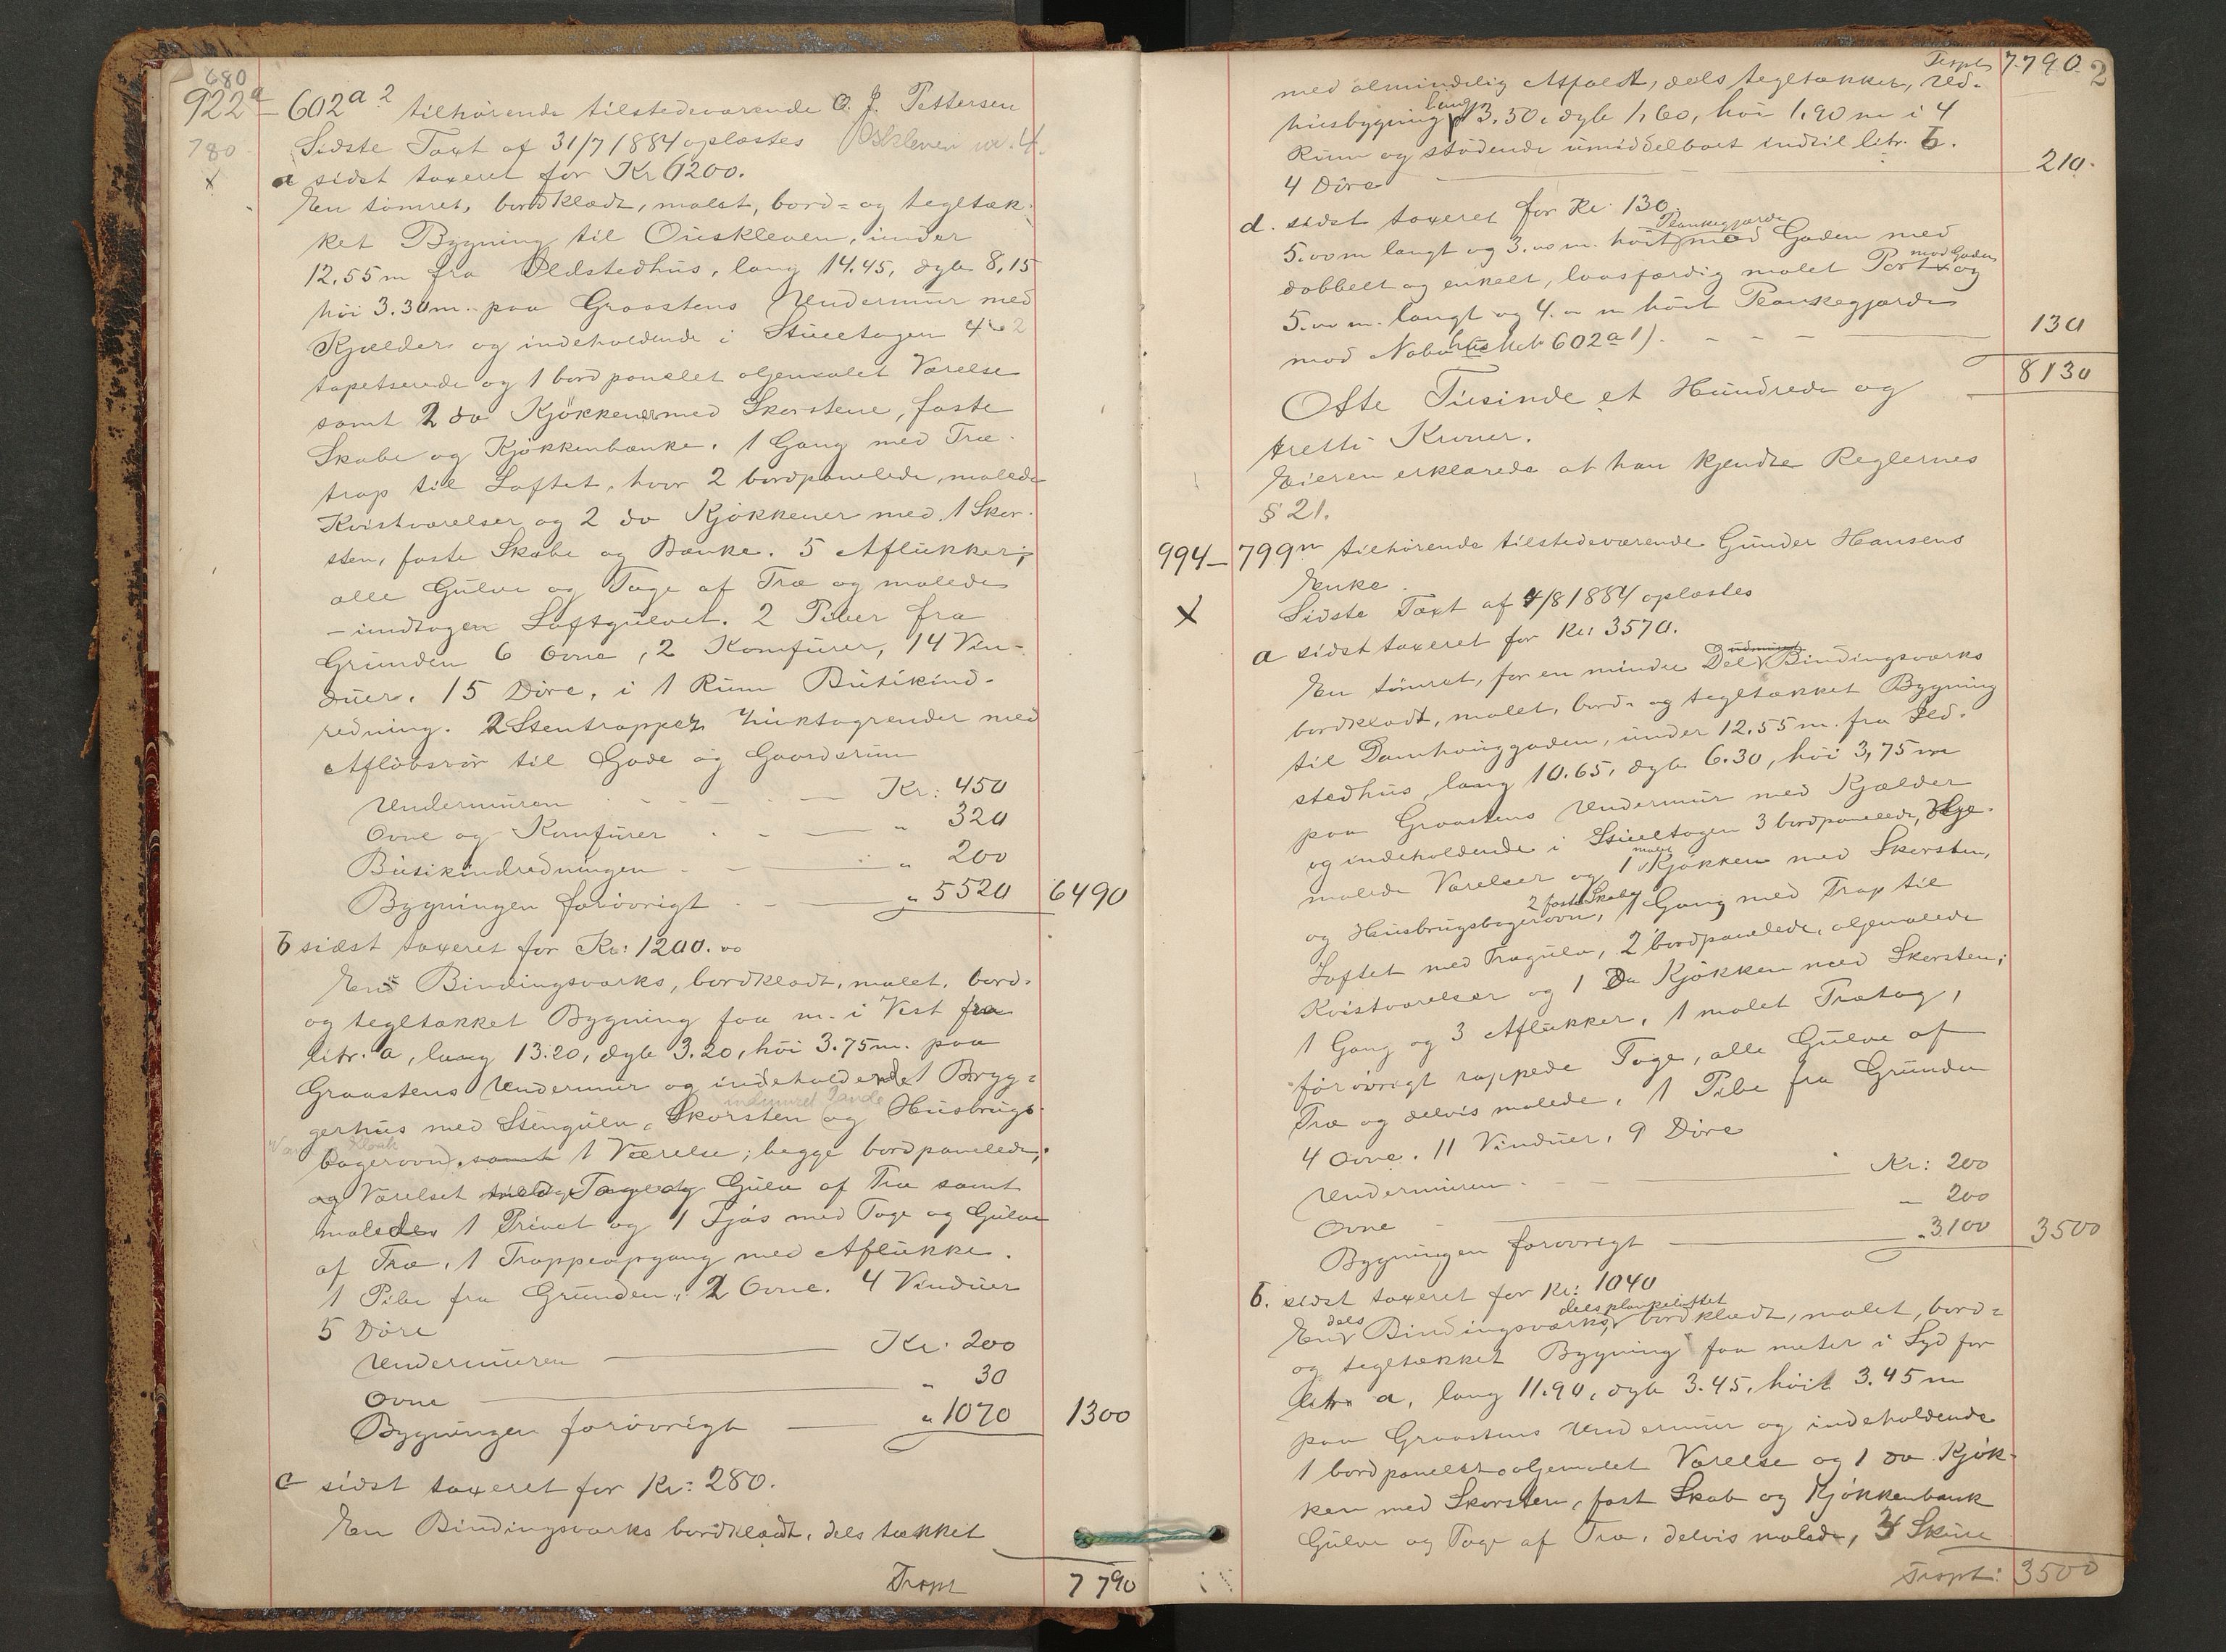 680
922a – 602a 2 tilhørende tilstedeværende O. J. Pettersen
780 Sidste Taxt af 31/7 1884 oplæstes Øskleven nr. 4.
x a sidst taxeret for Kr 6200.
En tømret, bordklædt, malet, bord- og tegltæk-
ket Bygning til Øuskleven, under
12.55 m fra Ildstedhus, lang 14.45, dyb 8,15
høi 3.30 m. paa Graastens Undermur med
Kjælder og indeholdende i Stueetagen 4 2
tapetserede og 1 bordpanelet oljemalet Værelse
samt 2 do Kjøkkener med Skorstene, faste
Skabe og Kjøkkenbænke. 1 Gang med Træ-
trap til Loftet, hvor 2 bordpanelede, malede
Kvistværelser og 2 do Kjøkkener med 1 Skor-
sten, faste Skabe og Bænke. 5 Aflukker;
alle Gulve og Tage af Træ og malede
– undtagen Loftgulvet. 2 Piber fra
Grunden 6 Ovne, 2 Komfurer, 14 Vin-
duer. 15 Døre, i 1 Rum Butikind-
redning. 2 Stentrapper Zinktagrender med
Afløbsrør til Gade og Gaardsrum
Undermuren – Kr: 450
Ovne og Komfurer – " 320
Butikindredningen – " 200
Bygningen forøvrigt – " 5520 6490
b sidst taxeret for Kr: 1200.00
En Bindingsværks, bordklædt, malet, bord-
og tegltækket Bygning faa m. i Vest fra
litr. a, lang 13.20, dyb 3.20, høi 3.75 m. paa
Graastens Undermur og indeholdende 1 Bryg-
indmuret Pande
gerhus med Stengulv, Skorsten og Husbrugs-
Kloak
bagerovn, samt 1 Værelse; begge bordpanelede;
og Værelset med Tage og Gulv af Træ samt
malede, 1 Privet og 1 Fjøs med Tage og Gulve
af Træ, 1 Trappeopgang med Aflukke.
1 Pibe fra Grunden, 2 Ovne. 4 Vinduer
5 Døre
Undermuren – Kr. 200
Ovne – " 30
Bygningen forøvrigt – " 1070 1300
c sidst taxeret for Kr: 280.
En Bindingsværks bordklædt, dels tækket
Trspt 7790
Trspt 7790 2
med almindelig Asfaldt, dels tegltækket, Ved-
husbygning lang 3.50, dyb 1,60, høi 1.90 m i 4
Rum og stødende umiddelbart indtil litr. b.
4 Døre – 210.
d. sidst taxeret for Kr. 130.
Plankegjærde
5.00 m langt og 3.00 m. høit mod Gaden med
dobbelt og enkelt, laasfærdig malet Port mod Gaden og
5.00 m. langt og 4.00 m høit Plankegjærde
mod Nabohuset (Mtr 602a 1). – – – 130
8130
Otte Tusinde et Hundrede og
tretti Kroner.
Eieren erklærede at han kjendte Reglernes
§ 21.
994 – 799m tilhørende tilstedeværende Gunder Hansens
Enke.
x Sidste Taxt af 4/8 1884 oplæstes
a sidst taxeret for Kr: 3570.
En tømret, for en mindre Del udmuret Bindingsværks
bordklædt, malet, bord- og tegltækket Bygning
til Damhouggaden, under 12.55 m. fra Ild-
stedhus, lang 10.65, dyb 6.30, høi 3,75 m
paa Graastens Undermur med Kjælder
og indeholdende i Stueetagen 3 bordpanelede, olje-
malede Værelser og 1 malet Kjøkken med Skorsten,
2 faste Skabe
og Husbrugsbagerovn, 1 Gang med Trap til
Loftet med Trægulv, 2 bordpanelede, oljemalede
Kvistværelser og 1 Do Kjøkken med Skorsten;
1 Gang og 3 Aflukker, 1 malet Trætag,
forøvrigt rappede Tage, alle Gulve af
Træ og delvis malede, 1 Pibe fra Grunden
4 Ovne. 11 Vinduer, 9 Døre
Undermuren – Kr: 200
Ovne – – 200
Bygningen forøvrigt – " 3100 3500
b. sidst taxeret for Kr: 1040
dels dels plankeløftet
En Bindingsværks, bordklædt, malet, bord-
og tegltækket Bygning faa meter i Syd for
litr a, lang 11.90, dyb 3.45, høit 3.45 m
paa Graastens Undermur og indeholdende
1 bordpanelet oljemalet Værelse og 1 do Kjøk-
ken med Skorsten, fast Skab og Kjøkkenbænk
Gulve og Tage af Træ, delvis malede, 3 Skure
Trspt: 3500